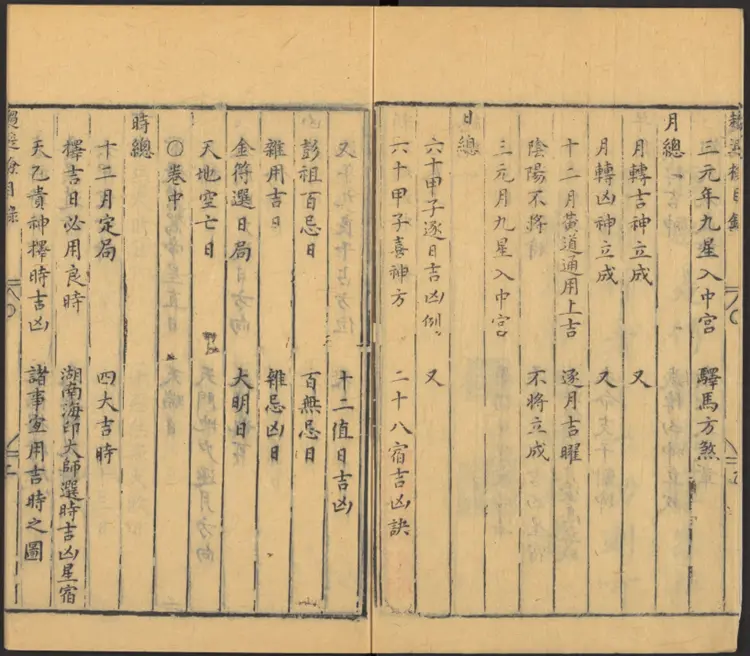 三元年九星入中宮　驛馬方煞
月總
月轉吉神立成　又
月轉凶神立成　又
十二月黃道通用上吉　逐月吉曜
陰陽不將　不將立成
三元月九星入中宮
日總
六十甲子逐日吉凶例　又
六十甲子喜神方　二十八宿吉凶訣
又　十二值日吉凶
彭祖百忌日　百無忌日
雜用吉日　雜忌凶日
金符選日局　大明日
天地空亡日
〇卷中
時總
十二月定局　四大吉時
擇吉日必用良時　湖南海印大師選時吉凶星宿
天乙貴神擇時吉凶　諸事宜用吉時之圖